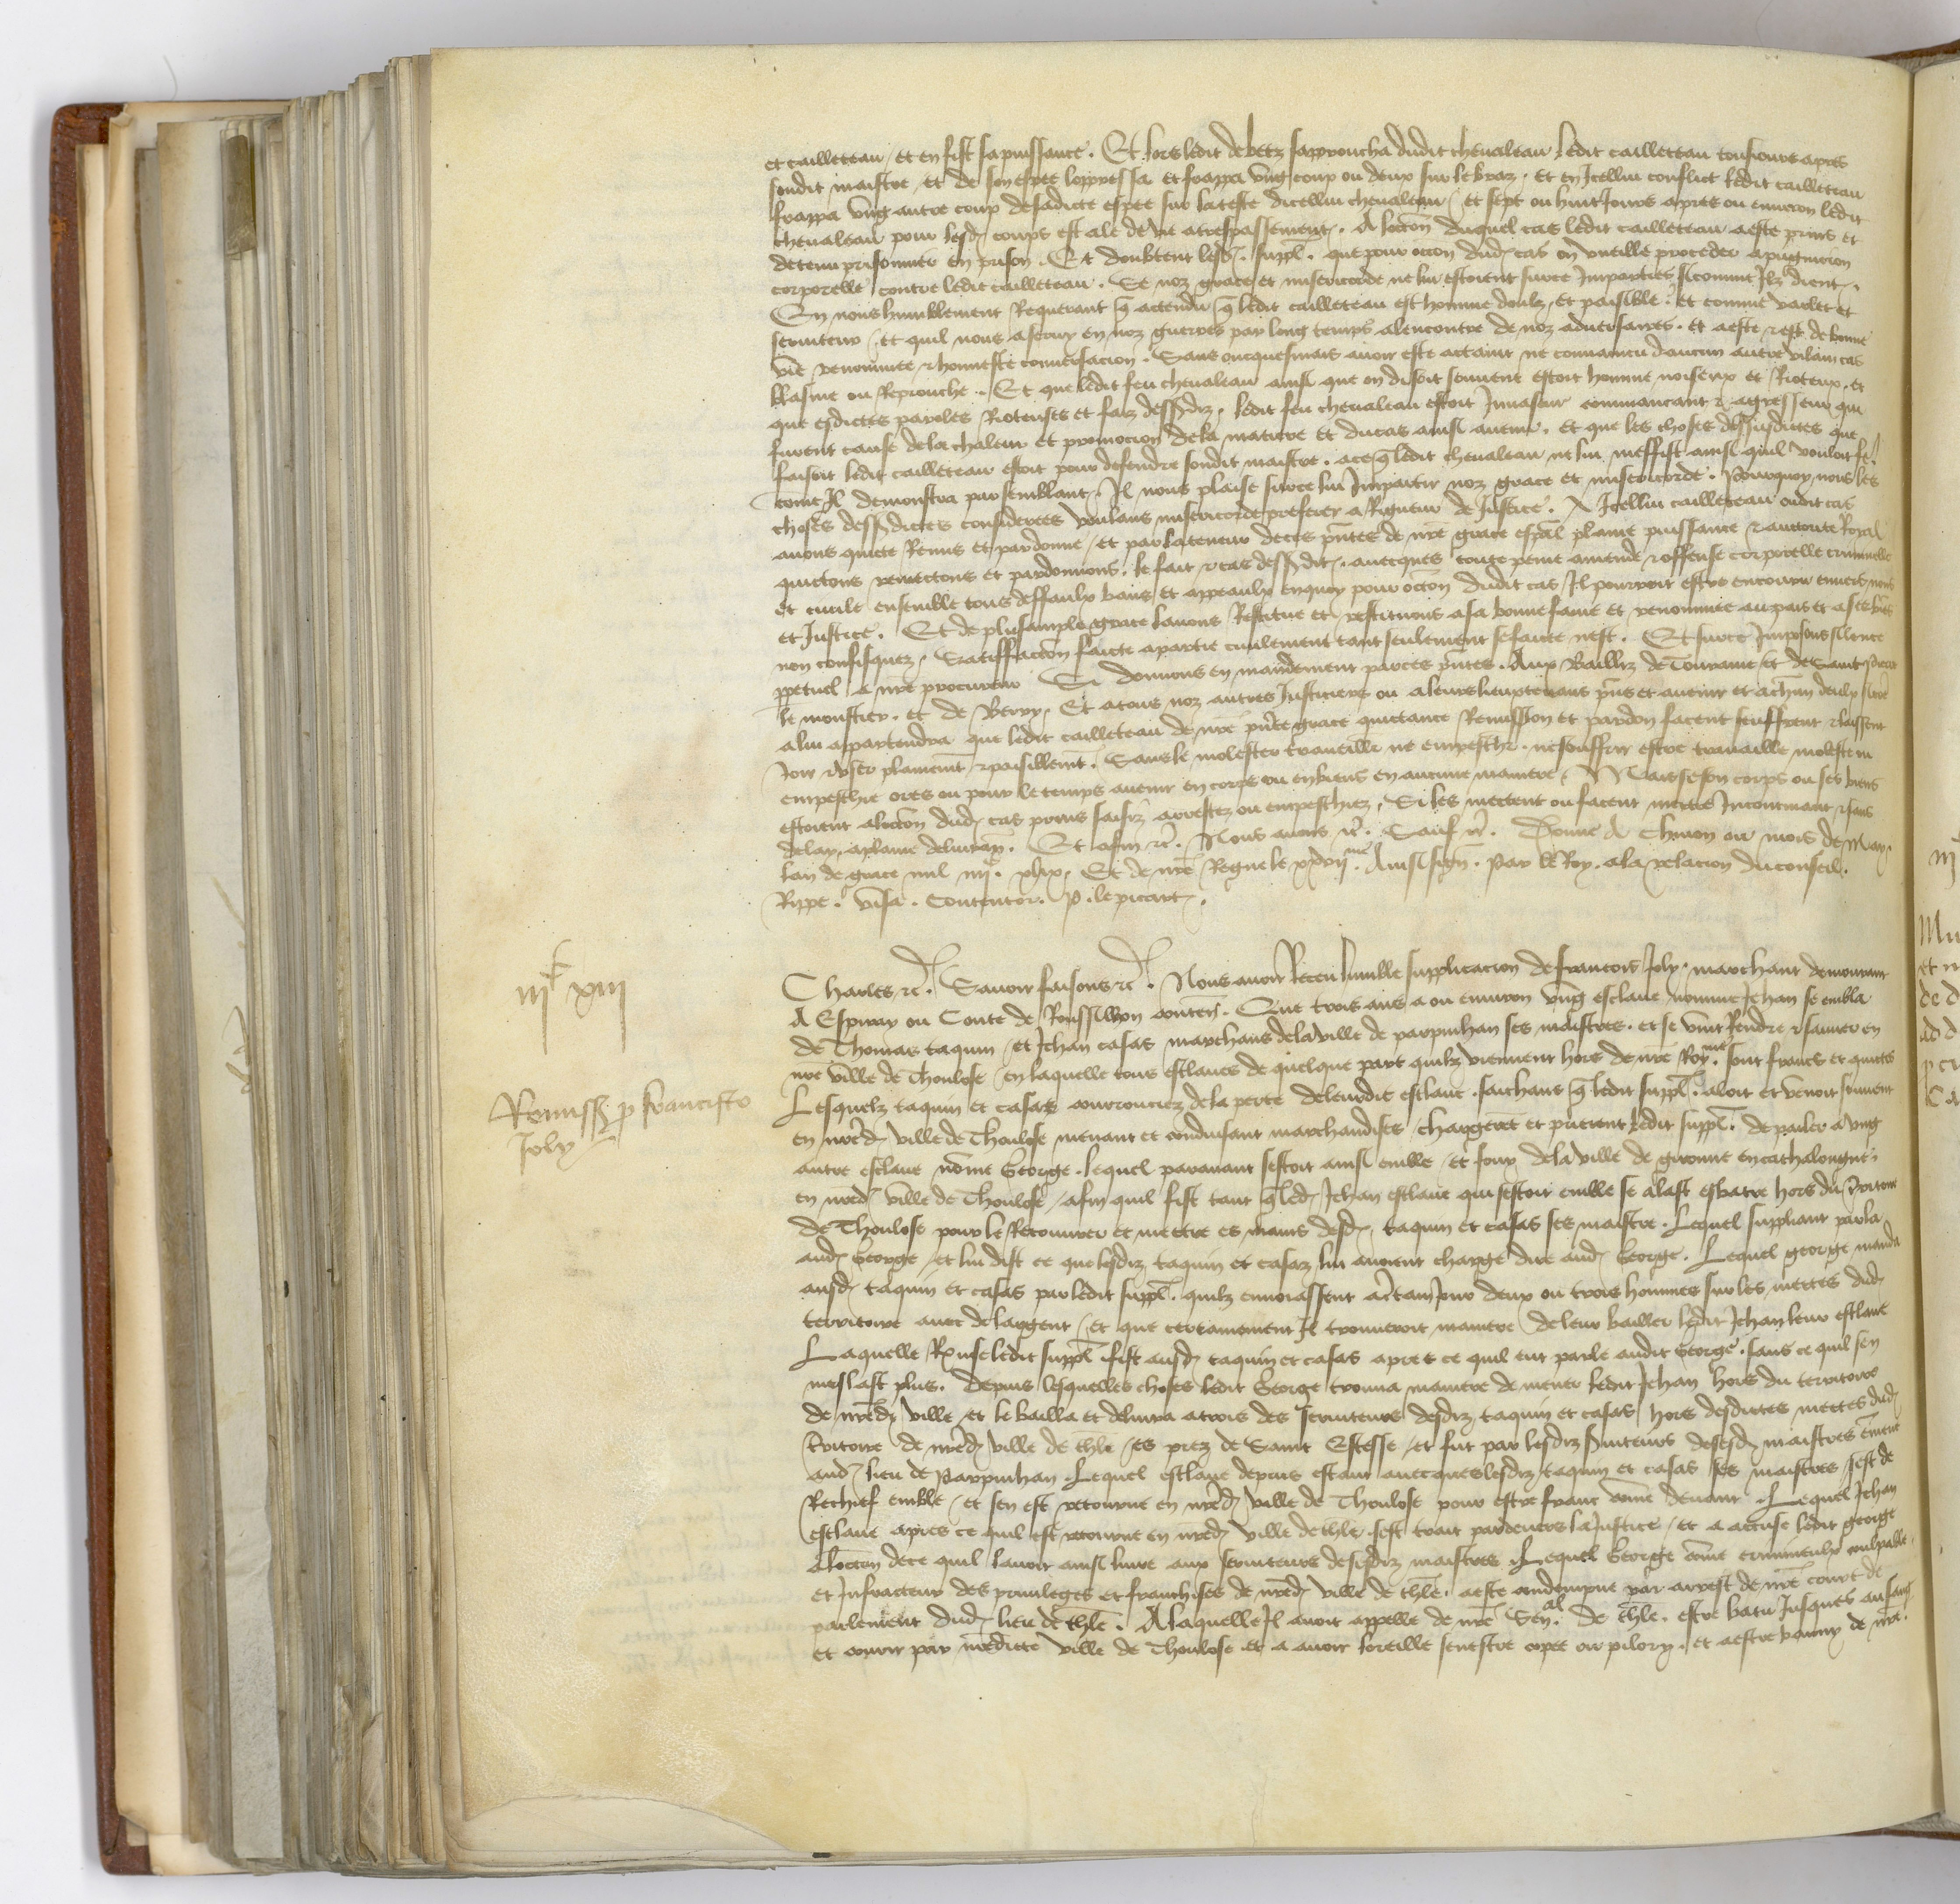 et cailleteau / et en fist sa puissance. Et lors ledit de betz sapproucha dudit chevaleau ledit cailleteau tousiours apres
sondit maistre / et de son espee loppressa et frappa ung coup ou deux sur le braz. et en Icellui conflict ledit cailleteau
frappa ung autre coup de sadicte espee sur la teste dicellui chevaleau / et sept ou huit Jours apres ou environ ledit
chevaleau pour lesd. coups est ale de vie a trespassement. A loccon duquel cas ledit cailleteau a este prins et
detenu prisonnier en prison. Et doubtent lesd. suppl. que pour occon dud. cas on vueille proceder a pugnicion
corporelle contre ledit cailleteau. Se noz grace et misericorde ne lui estoient sur ce Imparties sicomme Ilz dient.
En nous humblement Requerant q actendu q ledit cailleteau est homme doulz et paisible. et comme varlet et
serviteur / et quil nous a servy en noz guerres par long temps alencontre de noz adversaires. et a este et est de bonne
vie renommee et honneste conversacion. Sans oncquesmais avoir este actaint ne convaincu daucun autre vilain cas
blasme ou Reprouche. Et que ledit feu chevaleau ainsi que on disoit souvent estoit homme noiseux et Rioteux. et
que esdictes paroles Rioteuses et faiz dessusdiz. ledit feu chevaleau estoit Invaseur commancant et agresseur qui
furent cause de la chaleur et promocion de la matiere et du cas ainsi avenu. et que les choses dessusdites que
faisoit ledit cailleteau estoit pour defendre sondit maistre. ace q ledit chevaleau ne lui meffist ainsi quil vouloit fe.
come Il demonstra par semblant. Il nous plaise sur ce lui Impartir noz grace et misericorde. Pourquoy nous les
choses dessusdictes considerees voulans misericorde preferer a Rigueur de Justice. A Icellui cailleteau oudit cas
avons quicte Remis et pardonne / et par la teneur de ces pntes de nre grace espal plaine puissance et auctorite Royal
quictons remectons et pardonnons. le fait et cas dessusdit. avecques toute peine amende et offense corporelle criminelle
et civile ensemble tous deffaulx bans et appeaulx enquoy pour occon dudit cas Il pourroit estre encouru envers nous
et Justice. Et de plus ample grace lavons Restitue et restituons a sa bonne fame et renommee au pais et a ses biens
non confisquez. Satisfaccon faicte a partie civilement tant seulement se faicte nest. Et sur ce Imposons silence
ppetuel a nre procureur Si donnons en mandement par ces pntes. Aux Bailliz de Touraine et de Saint Pierre
le monstier. et de Berry. Et a tous noz autres Justiciers ou a leurs lieuxtenans pns et avenir et a chun deulx sicome
a lui appartendra que ledit cailleteau de nre pnte grace quictance Remission et pardon facent seuffrent et laissent
Joir et user plainemt et paisiblemt. Sans le molester travaillie ne empeschie. ne souffrir estre travaillie moleste ne
empeschie ores ou pour le temps avenir en corps ou en biens en aucune maniere. Mais se son corps ou ses biens
estoient a loccon dud. cas prins saisiz arrestez ou empeschiez. Si les mectent ou facent mectre Incontinant et sans
delay a plaine delivran. Et afin etc. Nous avons etc. Sauf etc. Donne A Chinon ou mois de May.
lan de grace mil iiijc. xlix. Et de nre Regne le xxvijme. Ainsi signe. Par le Roy. a la relacion du conseil.
Rippe. visa. Contentor. P. le picart.
iijc xiii
Remissio p francisco
Joly
Charles etc. Savoir faisons etc. Nous avoir Receu lumble supplicacion de francois Joly. marchant demourant
A Espiray ou Conte de Roussillon conten. Que trois ans a ou environ ung esclave nomme Jehan se embla
de Thomas taquin / et Jehan casas marchans de la ville de parpinhan ses maistres. et se vint Rendre et sauver en
nre ville de Thoulose / en laquelle tous esclaves de quelque part quilz viennent hors de nre Roy.me sont francs et quictes
Lesquelz taquin et casas courrouciez de la perte de leurdit esclave. saichans q ledit suppl. aloit et venoit souvent
en nred. ville de Thoulose menant et conduisant marchandises / chargeret et prierent ledit suppl. de parler a ung
autre esclave nome George. lequel paravant sestoit ainsi emble / et fouy de la ville de gironne en cathalongne
en nred. ville de Thoulose / afin quil fist tant q led. Jehan esclave qui sestoit emble se alast esbatre hors du tritoire
de Thoulose pour le Recouvrer et mectre es mains desd. taquin et casas ses maistre. Lequel suppliant parla
aud. George / et lui dist ce que lesdiz taquin et casaz lui avoient charge dire aud. George. Lequel george manda
ausd. taquin et casas par ledit suppl. quilz envoiassent a certain Jour deux ou trois hommes sur les mectes dud.
territoire avec de largent / et que certainement Il trouveroit maniere de leur bailler ledit Jehan leur esclave
Laquelle Response ledit suppl. fist ausd. taquin et casas apres ce quil eut parle audit George. sans ce quil sen
meslast plus. Depuis lesquelles choses ledit George trouva maniere de mener ledit Jehan hors du territoire
de nred. ville et le bailla et delivra a trois des serviteurs desdiz taquin et casas hors desdictes mectes dud.
tritoire de nred. ville de thle / es prez de Saint Estesse / et fut par lesdiz suiteurs de sesd. maistres emene
aud. lieu de Parpinhan. Lequel esclave depuis estant avecques lesdiz taquin et casas ses maistres sest de
Rechief emble / et sen est retourne en nred. ville de Thoulose pour estre franc come devant. Lequel Jehan
esclave apres ce quil est retourne en nred. ville de thle. sest trait pardevers la Justice / et a accuse ledit george
a loccon de ce quil lavoit ainsi livre aux serviteurs de sesdiz maistres. Lequel George come crimineulx coulpable
et Infracteur des privileges et franchises de nred. ville de thle. a este condempne par arrest de nre court de
parlement dud. lieu de thle. A laquelle Il avoit appelle de nre Sen.al de thle. estre batu Jusques au sang
et courir par nredicte ville de Thoulose et a avoir loreille senestre copee ou pilory. et a estre banny de nre.